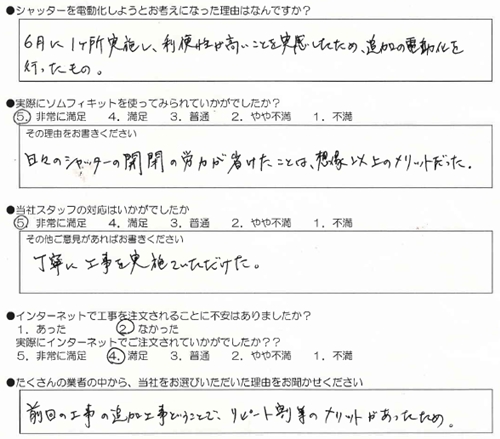 ●シャッターを電動化しようとお考えになった理由はなんですか?
6月に1ヶ所実施し、利便性が高いことを実感したため、追加の電動化を
行ったもの。
●実際にソムフィキットを使ってみられていかがでしたか?
5. 非常に満足 4. 満足 3. 普通 2. やや不満 1. 不満
その理由をお書きください
日々のシャッターの開閉の労力が省けたことは、想像以上のメリットだった。
●当社スタッフの対応はいかがでしたか
5. 非常に満足 4. 満足 3. 普通 2. やや不満 1. 不満
その他ご意見があればお書きください
丁寧に工事を実施していただけた。
●インターネットで工事を注文されることに不安はありましたか?
1. あった 2. なかった
実際にインターネットでご注文されていかがでしたか??
5. 非常に満足 4. 満足 3. 普通 2. やや不満 1. 不満
●たくさんの業者の中から、当社をお選びいただいた理由をお聞かせください
前回の工事の追加工事ということで、リピート割等のメリットがあったため。